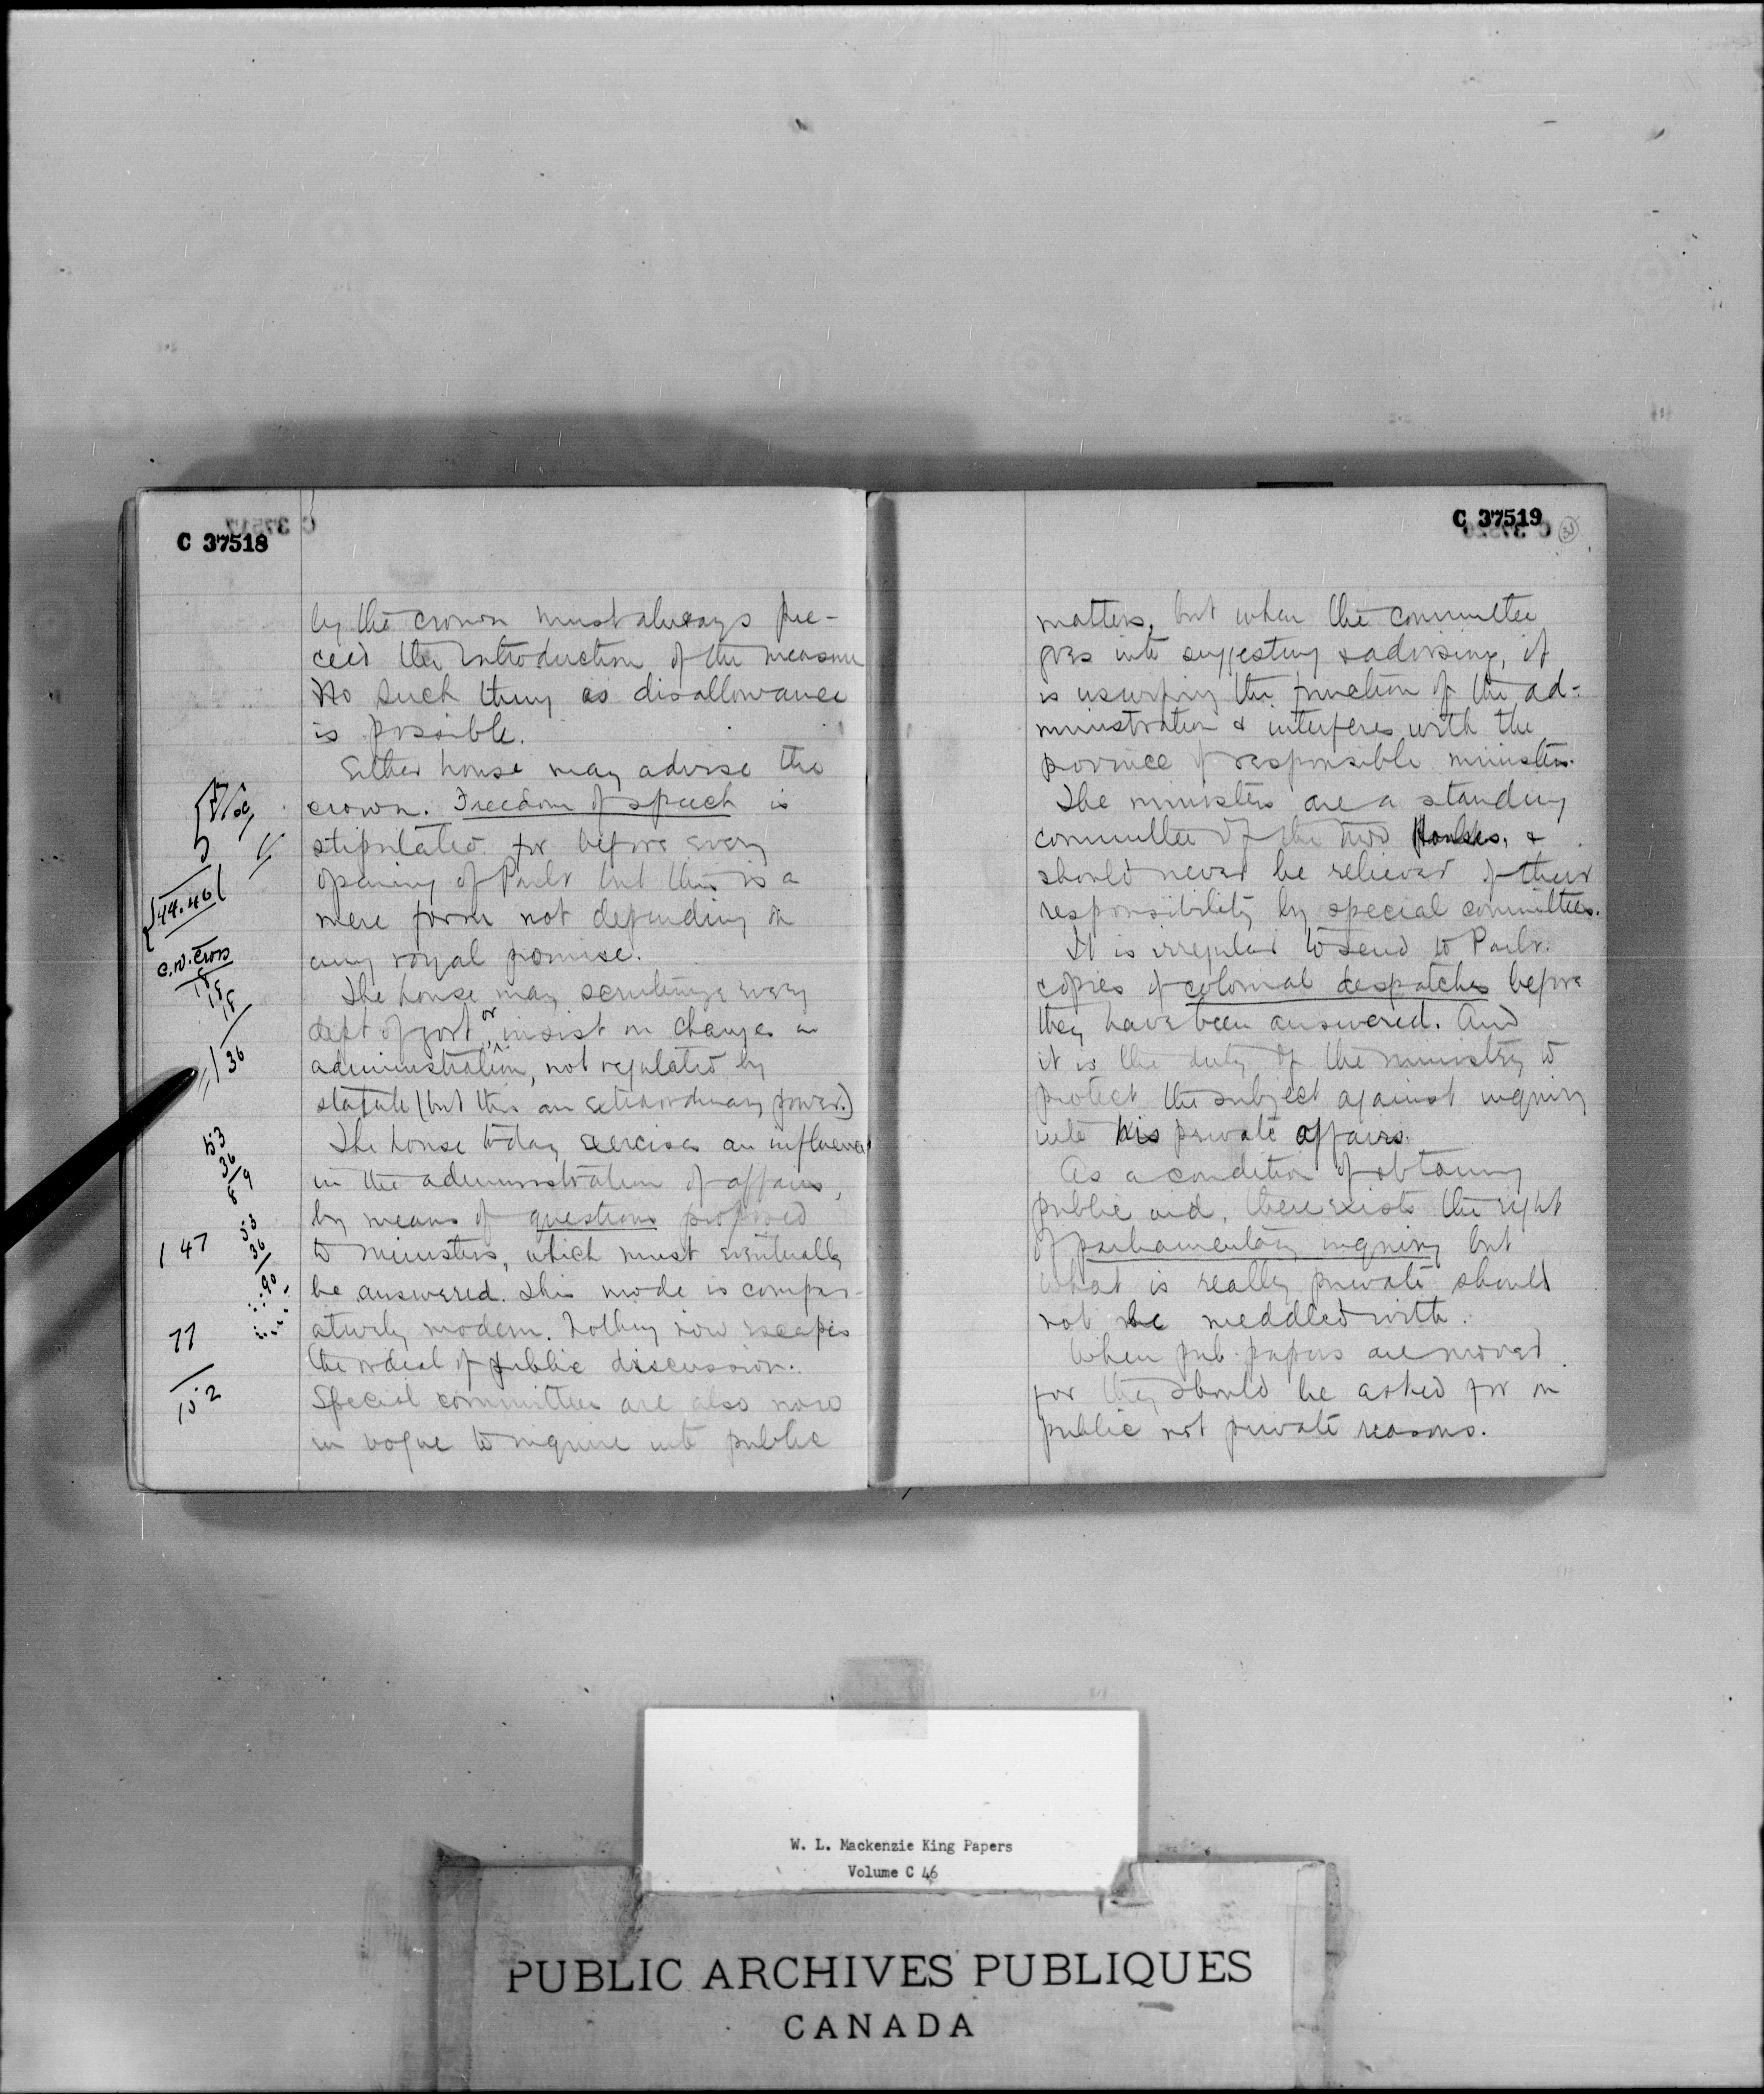 C 37518
by the crown must always pre-
ceed the introduction of the measure
No such thing as disallowance
is possible.
Either house may advise the
crown. Freedom of speech is
stipulated for before every
opening of Parlt but this is a
mere form not depending on
any royal promise.
The house may scrutinize every
dept of govt or insist on changes in
administration, not regulated by
statute (but this an extraordinary power.)
The house today exercises an influence
in the administration of affairs,
by means of questions proposed
to ministers, which must eventually
be answered. This mode is compar-
atively modern. Nothing now escapes
the ordeal of public discussion.
Special committees are also now
in vogue to inquire into public
44.46
C.W. Cross
18
18
136
53
36
89
147
53
36
90
77
102
C 37519
matters, but when the committee
goes into suggesting & advising, it
is usurping the function of the ad-
ministration & interferes with the
province of responsible ministers.
The ministers are a standing
committee of the two Houses, &
should never be relieved of their
responsibility by special committees.
It is irregular to send to Parlt.
copies of colonial despatches before
they have been answered. And
it is the duty of the ministry to
protect the subject against inquiry
into his private affairs.
As a condition of obtaining
public aid, there exists the right
of parliamentary inquiry but
what is really private should
not be meddled with.
When pub. papers are moved
for they should be asked for on
public not private reasons.
W. L. Mackenzie King Papers
Volume C 46
PUBLIC ARCHIVES PUBLIQUES
CANADA